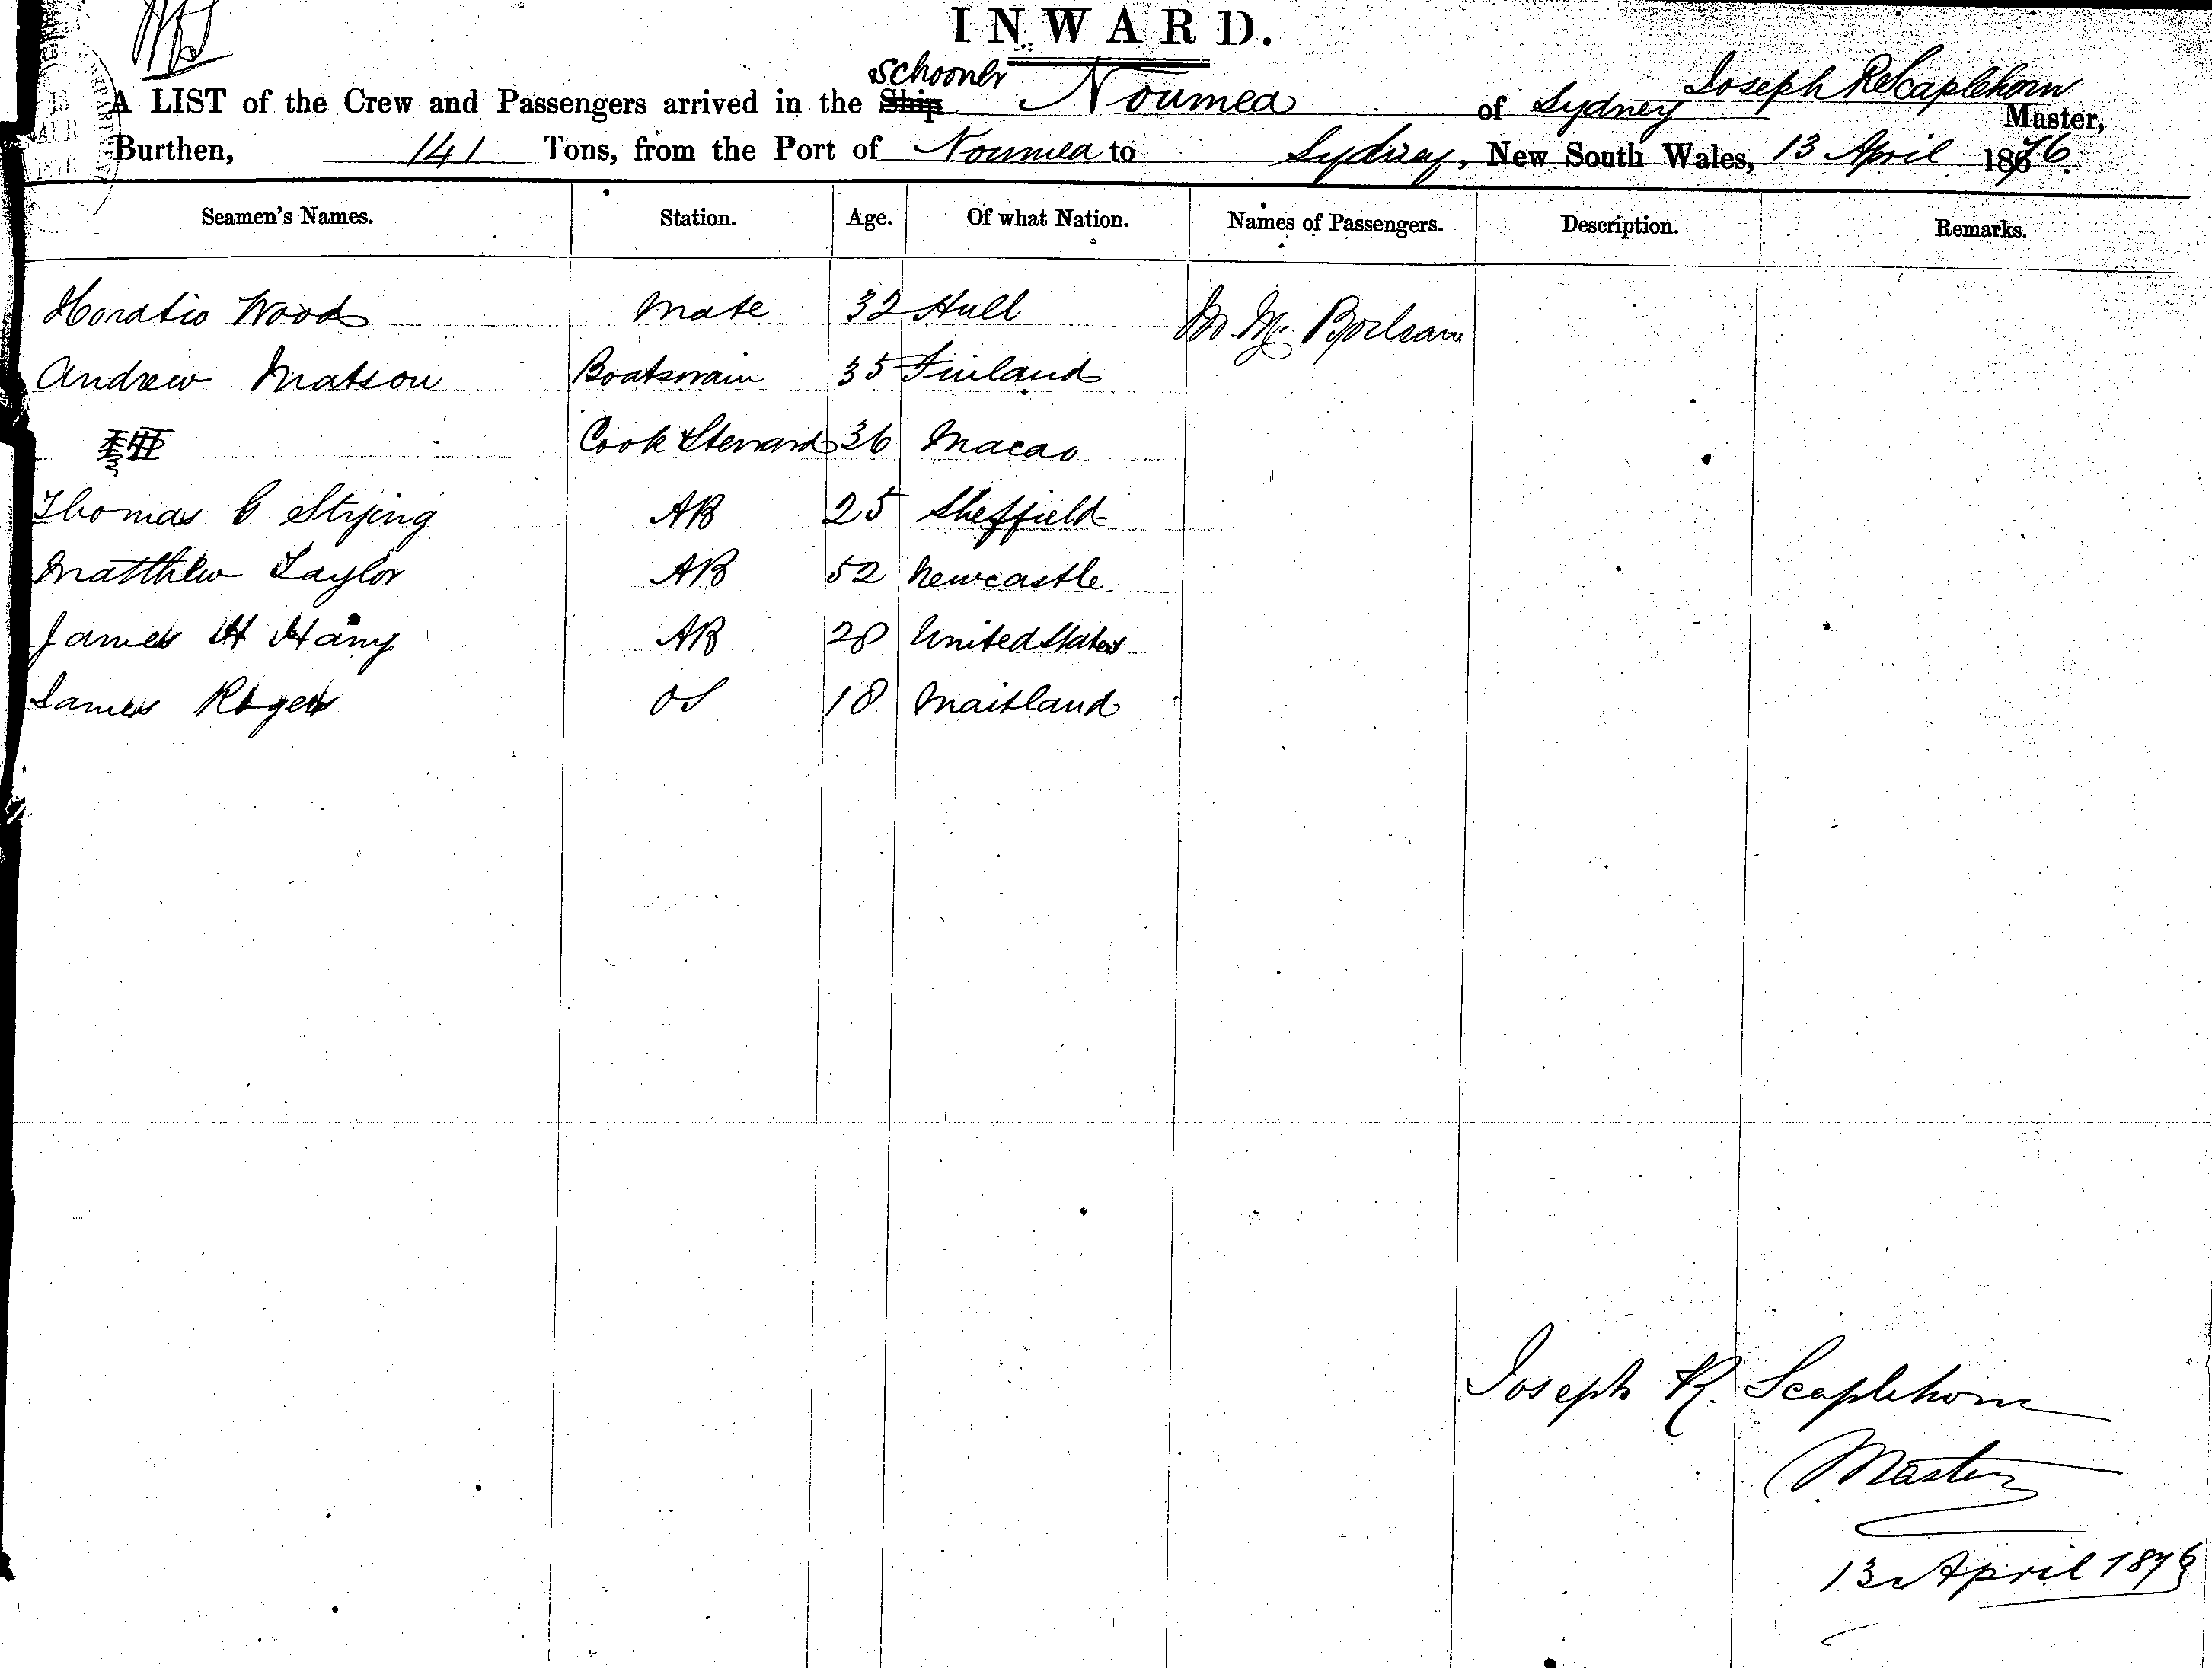 INWARD.
Schooner
A LIST of the Crew and Passengers arrived in the Ship Noumea of Sydney Joseph R Scaplehorn Master,
Burthen, 141 Tons, from the Port of Noumea to Sydney, New South Wales, 13 April 1876.
Seamen's Names. Station. Age. Of what Nation. Names of Passengers. Description. Remarks.
Horatio Wood Mate 32 Hull Mr
Andrew Matson Boatswain 35 Finland
Cook Steward 36 Macao
Thomas G AB 25 Sheffield
Matthew Taylor AB 52 Newcastle
James H AB 28 United States
James Rogers OS 18 Maitland
Joseph R. Scaplehorn
Master
13 April 1876